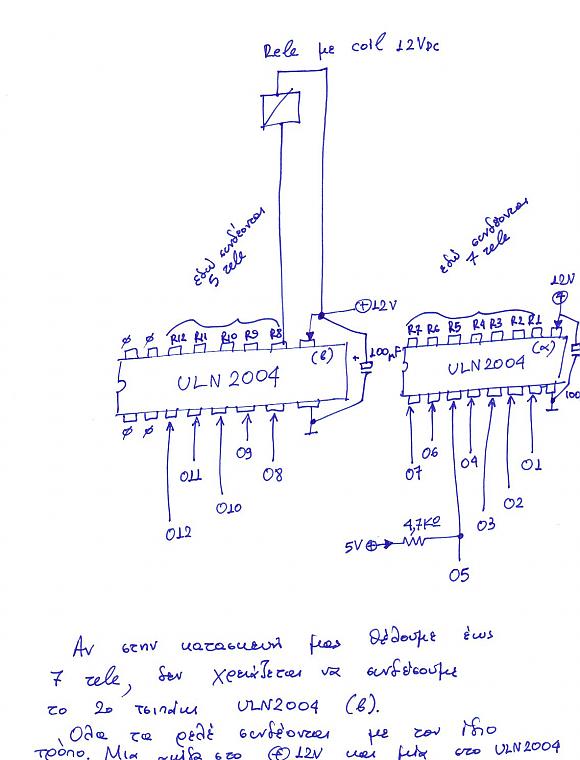 Rele με coil 12VDC
εδω συνδέονται
5 rele
εδω συνδεονται
7 rele
12V
+
+ 12V
Ø Ø R12 R11 R10 R9 R8
R7 R6 R5 R4 R3 R2 R1
(β)
+ 100μF
(α)
ULN 2004
ULN2004
100
Ø Ø
O9 O8
O11
O10
O12
O7 O6 O4 O1
O2
O3
4,7KΩ
5V +
O5
Αν στην κατασκευή μας θέλουμε έως
7 rele, δεν χρειάζεται να συνδέσουμε
το 2ο τσιπάκι ULN2004 (β).
Ολα τα ρελέ συνδέονται με τον ίδιο
τρόπο. Μια στο + 12V και μία στο ULN2004